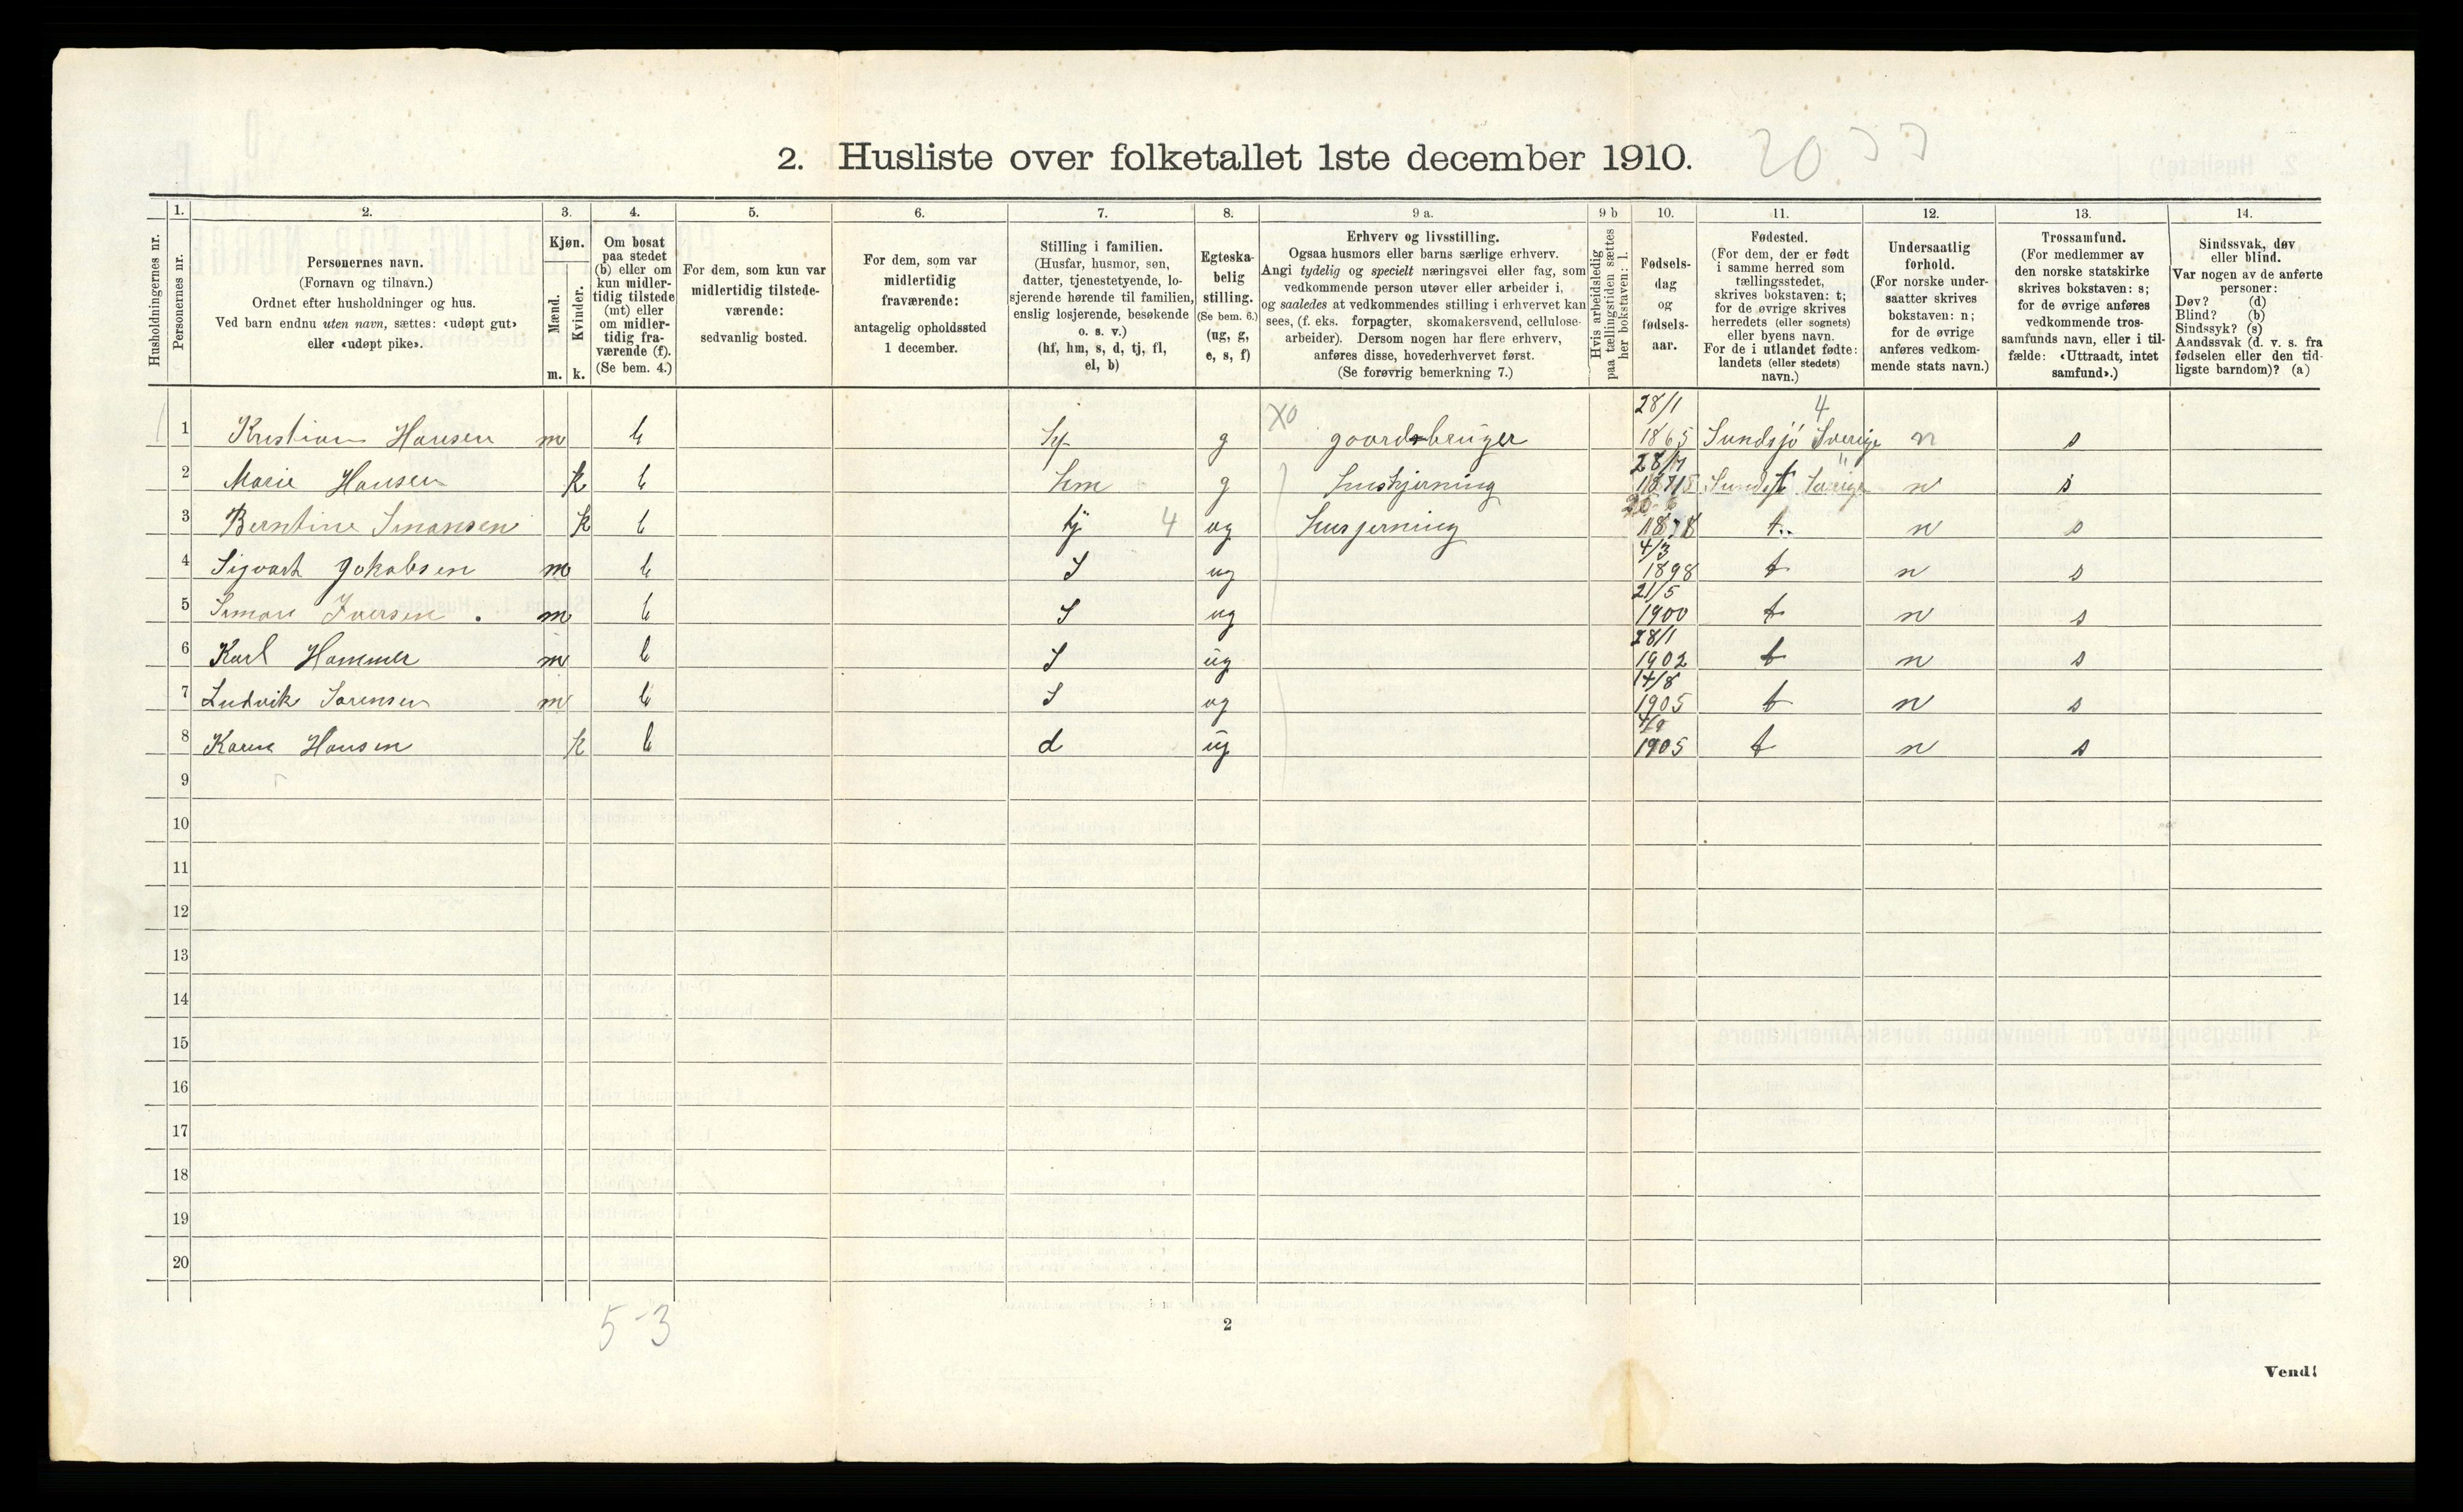 2. Husliste over folketallet 1ste december 1910.
1. 2. 3. 4. 5. 6. 7. 8. 9 a. 9 b 10. 11. 12. 13. 14.
Husholdningernes nr.
Personernes nr.
Personernes navn.
(Fornavn og tilnavn.)
Ordnet efter husholdninger og hus.
Ved barn endnu uten navn, sættes: «udøpt gut»
eller «udøpt pike».
Kjøn.
Mænd.
Kvinder.
m. k.
Om bosat
paa stedet
(b) eller om
kun midler-
tidig tilstede
(mt) eller
om midler-
tidig fra-
værende (f).
(Se bem. 4.)
For dem, som kun var
midlertidig tilstede-
værende:
sedvanlig bosted.
For dem, som var
midlertidig
fraværende:
antagelig opholdssted
1 december.
Stilling i familien.
(Husfar, husmor, søn,
datter, tjenestetyende, lo-
sjerende hørende til familien,
enslig losjerende, besøkende
o. s. v.)
(hf, hm, s, d, tj, fl,
el, b)
Egteska-
belig
stilling.
(Se bem. 6.)
(ug, g,
e, s, f)
Erhverv og livsstilling.
Ogsaa husmors eller barns særlige erhverv.
Angi tydelig og specielt næringsvei eller fag, som
vedkommende person utøver eller arbeider i,
og saaledes at vedkommendes stilling i erhvervet kan
sees, (f. eks. forpagter, skomakersvend, cellulose-
arbeider). Dersom nogen har flere erhverv,
anføres disse, hovederhvervet først.
(Se forøvrig bemerkning 7.)
Hvis arbeidsledig
paa tællingstiden sættes
her bokstaven: l.
Fødsels-
dag
og
fødsels-
aar.
Fødested.
(For dem, der er født
i samme herred som
tællingsstedet,
skrives bokstaven: t;
for de øvrige skrives
herredets (eller sognets)
eller byens navn.
For de i utlandet fødte:
landets (eller stedets)
navn.)
Undersaatlig
forhold.
(For norske under-
saatter skrives
bokstaven: n;
for de øvrige
anføres vedkom-
mende stats navn.)
Trossamfund.
(For medlemmer av
den norske statskirke
skrives bokstaven: s;
for de øvrige anføres
vedkommende tros-
samfunds navn, eller i til-
fælde: «Uttraadt, intet
samfund».)
Sindssvak, døv
eller blind.
Var nogen av de anførte
personer:
Døv? (d)
Blind? (b)
Sindssyk? (s)
Aandssvak (d. v. s. fra
fødselen eller den tid-
ligste barndom)? (a)
1 Kristian Hansen m b hf g X0 gaardsbruger 28/1 1865 Sundsjö Sverige 4 n s
2 Marie Hansen k b hm g Huskjerning 28/7 Sverige n s
3 Berntine k b tj 4 ug 1878 t n s
4 Sigvart Jakobsen m b S ug 4/3 1898 t n s
5 Simon Iversen m b S ug 21/5 1900 t n s
6 Karl Hammer m b S ug 28/1 1902 t n s
7 Ludvik Sørensen m b S ug 14/8 1905 t n s
8 Hansen k b d ug 1905 t n s
9
10
11
12
13
14
15
16
17
18
19
20
5-3
2
Vend!